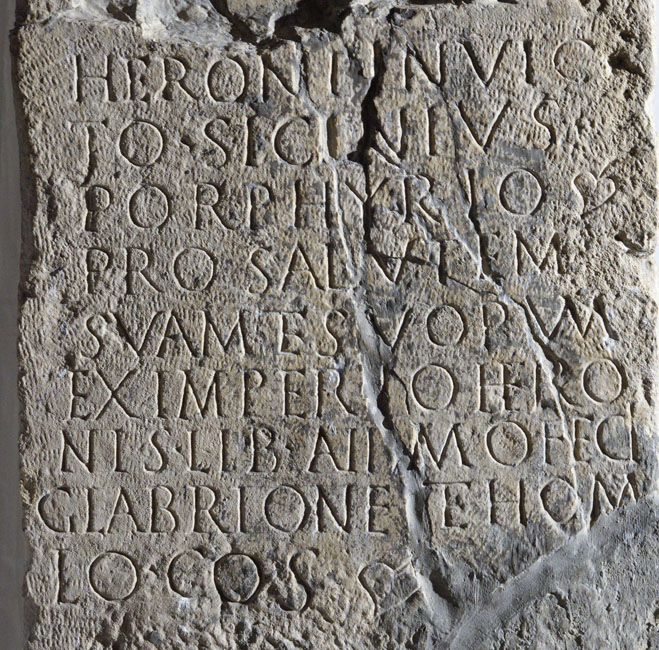 HERONI INVIC
TO · SICINIVS
PORPHYRIO ❦
PRO SALVTEM
SVAM ESVORVM
EX IMPERIO HERO
NIS · LIB · ANIMO FECI
GLABRIONE ET HOM
LO · COS ❦